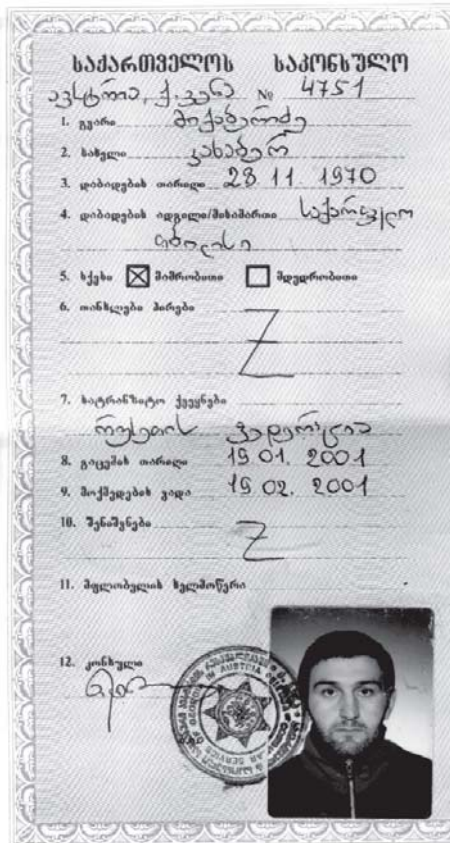 საქართველოს საკონსულო
ავსტრია, ქ. ვენა № 4751
1. გვარი მიქაბერიძე
2. სახელი კახაბერ
3. დაბადების თარიღი 28 11 1970
4. დაბადების ადგილი/მისამართი საქართველო
თბილისი
5. სქესი მამრობითი მდედრობითი
6. თანხლები პირები
Z
7. სატრანზიტო ქვეყნები
რუსეთის ფედერაცია
8. გაცემის თარიღი 19.01. 2001
9. მოქმედების ვადა 19 02. 2001
10. შენიშვნები
Z
11. მფლობელის ხელმოწერა
12. კონსული
IN AUSTRIA